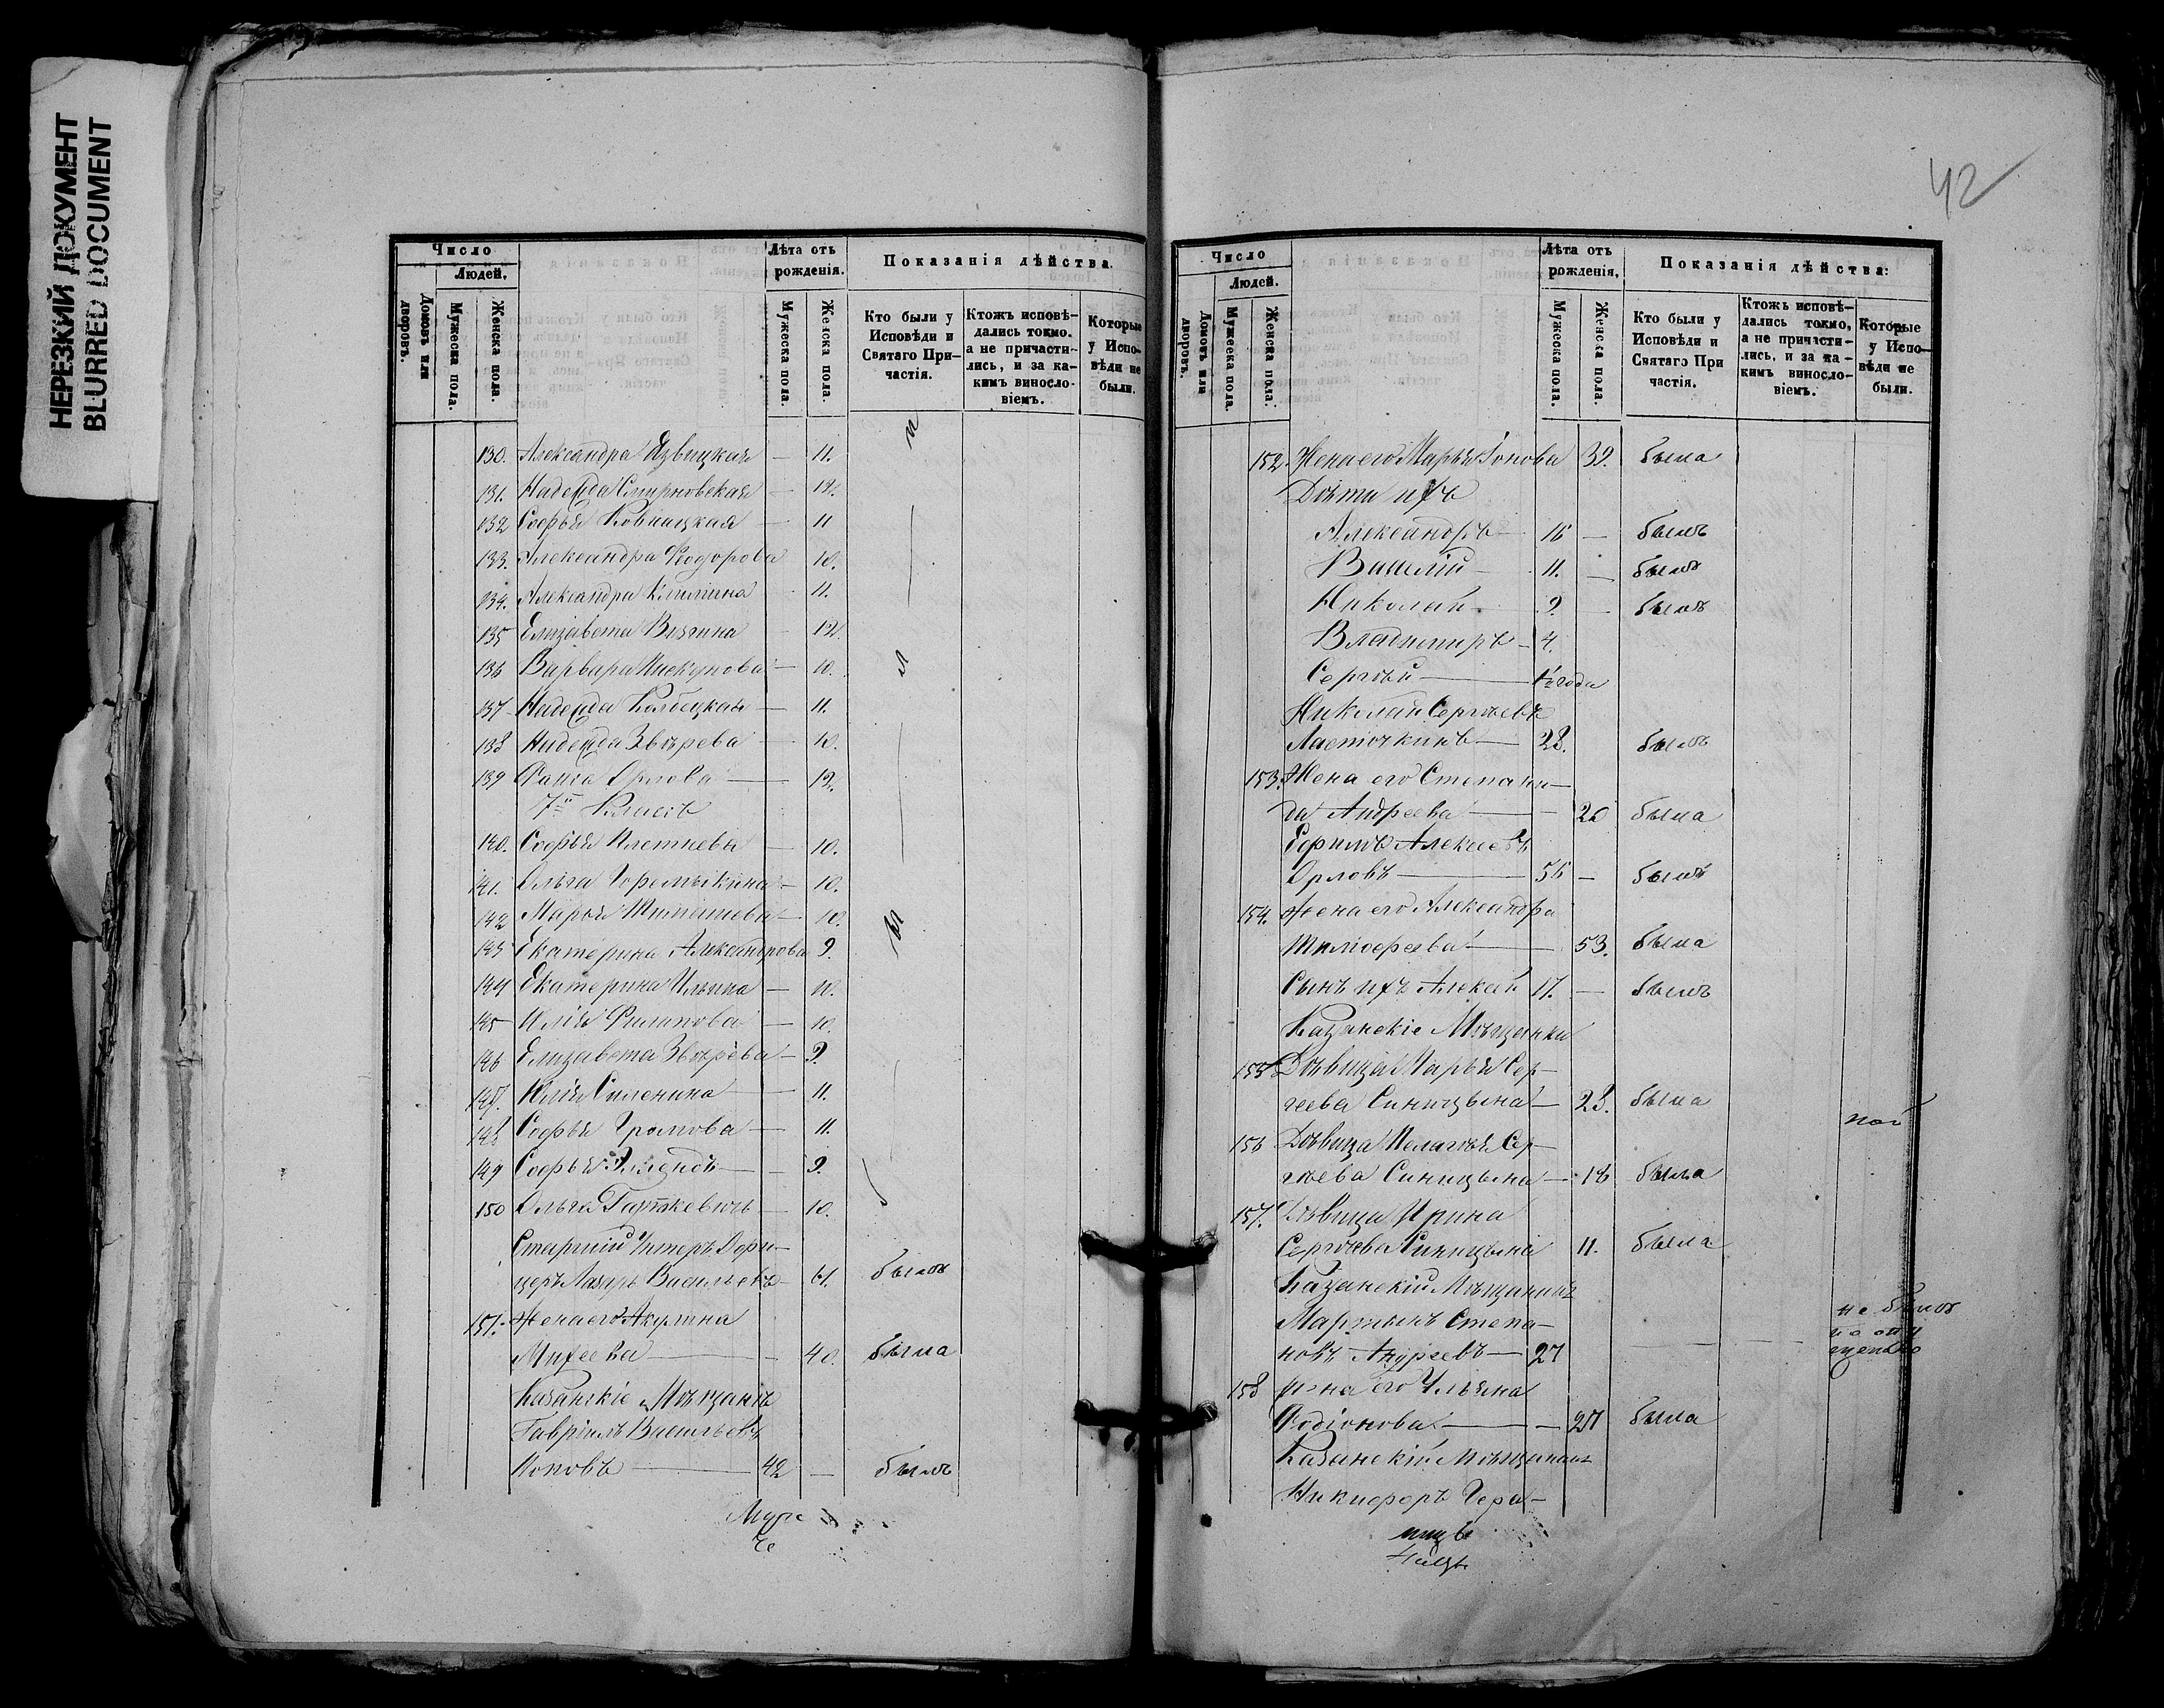 НЕРЕЗКИЙ ДОКУМЕНТ
BLURRED DOCUMENT
Число
Людей.
Домовъ или дворовъ.
Мужеска пола.
Женска пола.
Лѣта отъ рожденія.
Мужеска пола.
Женска пола.
Показанія дѣйства.
Кто были у Исповѣди и Святаго Причастія.
Ктожъ исповѣдались токмо, а не причастились, и за какимъ винословіемъ.
Которые у Исповѣди не были.
130. Александра Язвицкая — 11.
131. Надежда Смирновская — 12.
132 Софья Ковницкая — 11
133. Александра Ѳеодорова 10.
134. Александра 11.
135 Елизавета Вязгина — 12.
136 Варвара Пискунова — 10.
137 Надежда — 11.
138 Надежда Звѣрева — 10.
139 Орлова — 12.
7й Классъ
140. Софья Плетнева — 10.
141. Ольга Горемыкина — 10.
142 Марья 10.
143 Екатерина Александрова 9.
144 Екатерина Ильина — 10.
145 Юлія Филипова — 10.
146 Елизавета Звѣрева — 9.
147. Юлія — 11.
148 Софья Громова — 11.
149 Софья — 9.
150 Ольга — 10.
Старшій Унтеръ Офи-
церъ Лазарь Васильевъ 61. былъ
151. Жена его Акулина
Михеева — 40. была
Казанскіе Мѣщане
Гавріилъ Васильевъ
Поповъ — 42 — былъ
42
Число
Людей.
Домовъ или дворовъ.
Мужеска пола.
Женска пола.
Лѣта отъ рожденія.
Мужеска пола.
Женска пола.
Показанія дѣйства:
Кто были у Исповѣди и Святаго Причастія.
Ктожъ исповѣдались токмо, а не причастились, и за какимъ винословіемъ.
Которые у Исповѣди не были.
152. Жена его Марья 39. была
Дѣти ихъ
Александръ 16 — былъ
Василій — 11. — былъ
Николай — 9 — былъ
Владимиръ — 4.
Сергѣй — 1½ года
Николай Сергѣевъ
Ласточкинъ — 28. былъ
153. Жена его Степани-
да Андреева — 20 была
Ефимъ Алексѣевъ
Орловъ — 56 — былъ
154. Жена его Александра
Тимофеева — 53. была
Сынъ ихъ Алексѣй 17. — былъ
Казанскіе Мѣщанки
155 Дѣвица Марья Сер-
геева Синицына — 23. была
156 Дѣвица Пелагея Сер-
гѣева Синицына — 16 была
157. Дѣвица Ирина
Сергѣева Синицына 11. была
Казанскій Мѣщанинъ
Мартынъ Степа-
новъ Андреевъ — 27 не былъ
158 Жена его Ульяна
Родіонова — 27 была
Казанскій Мѣщанинъ
Никифоръ Гера-